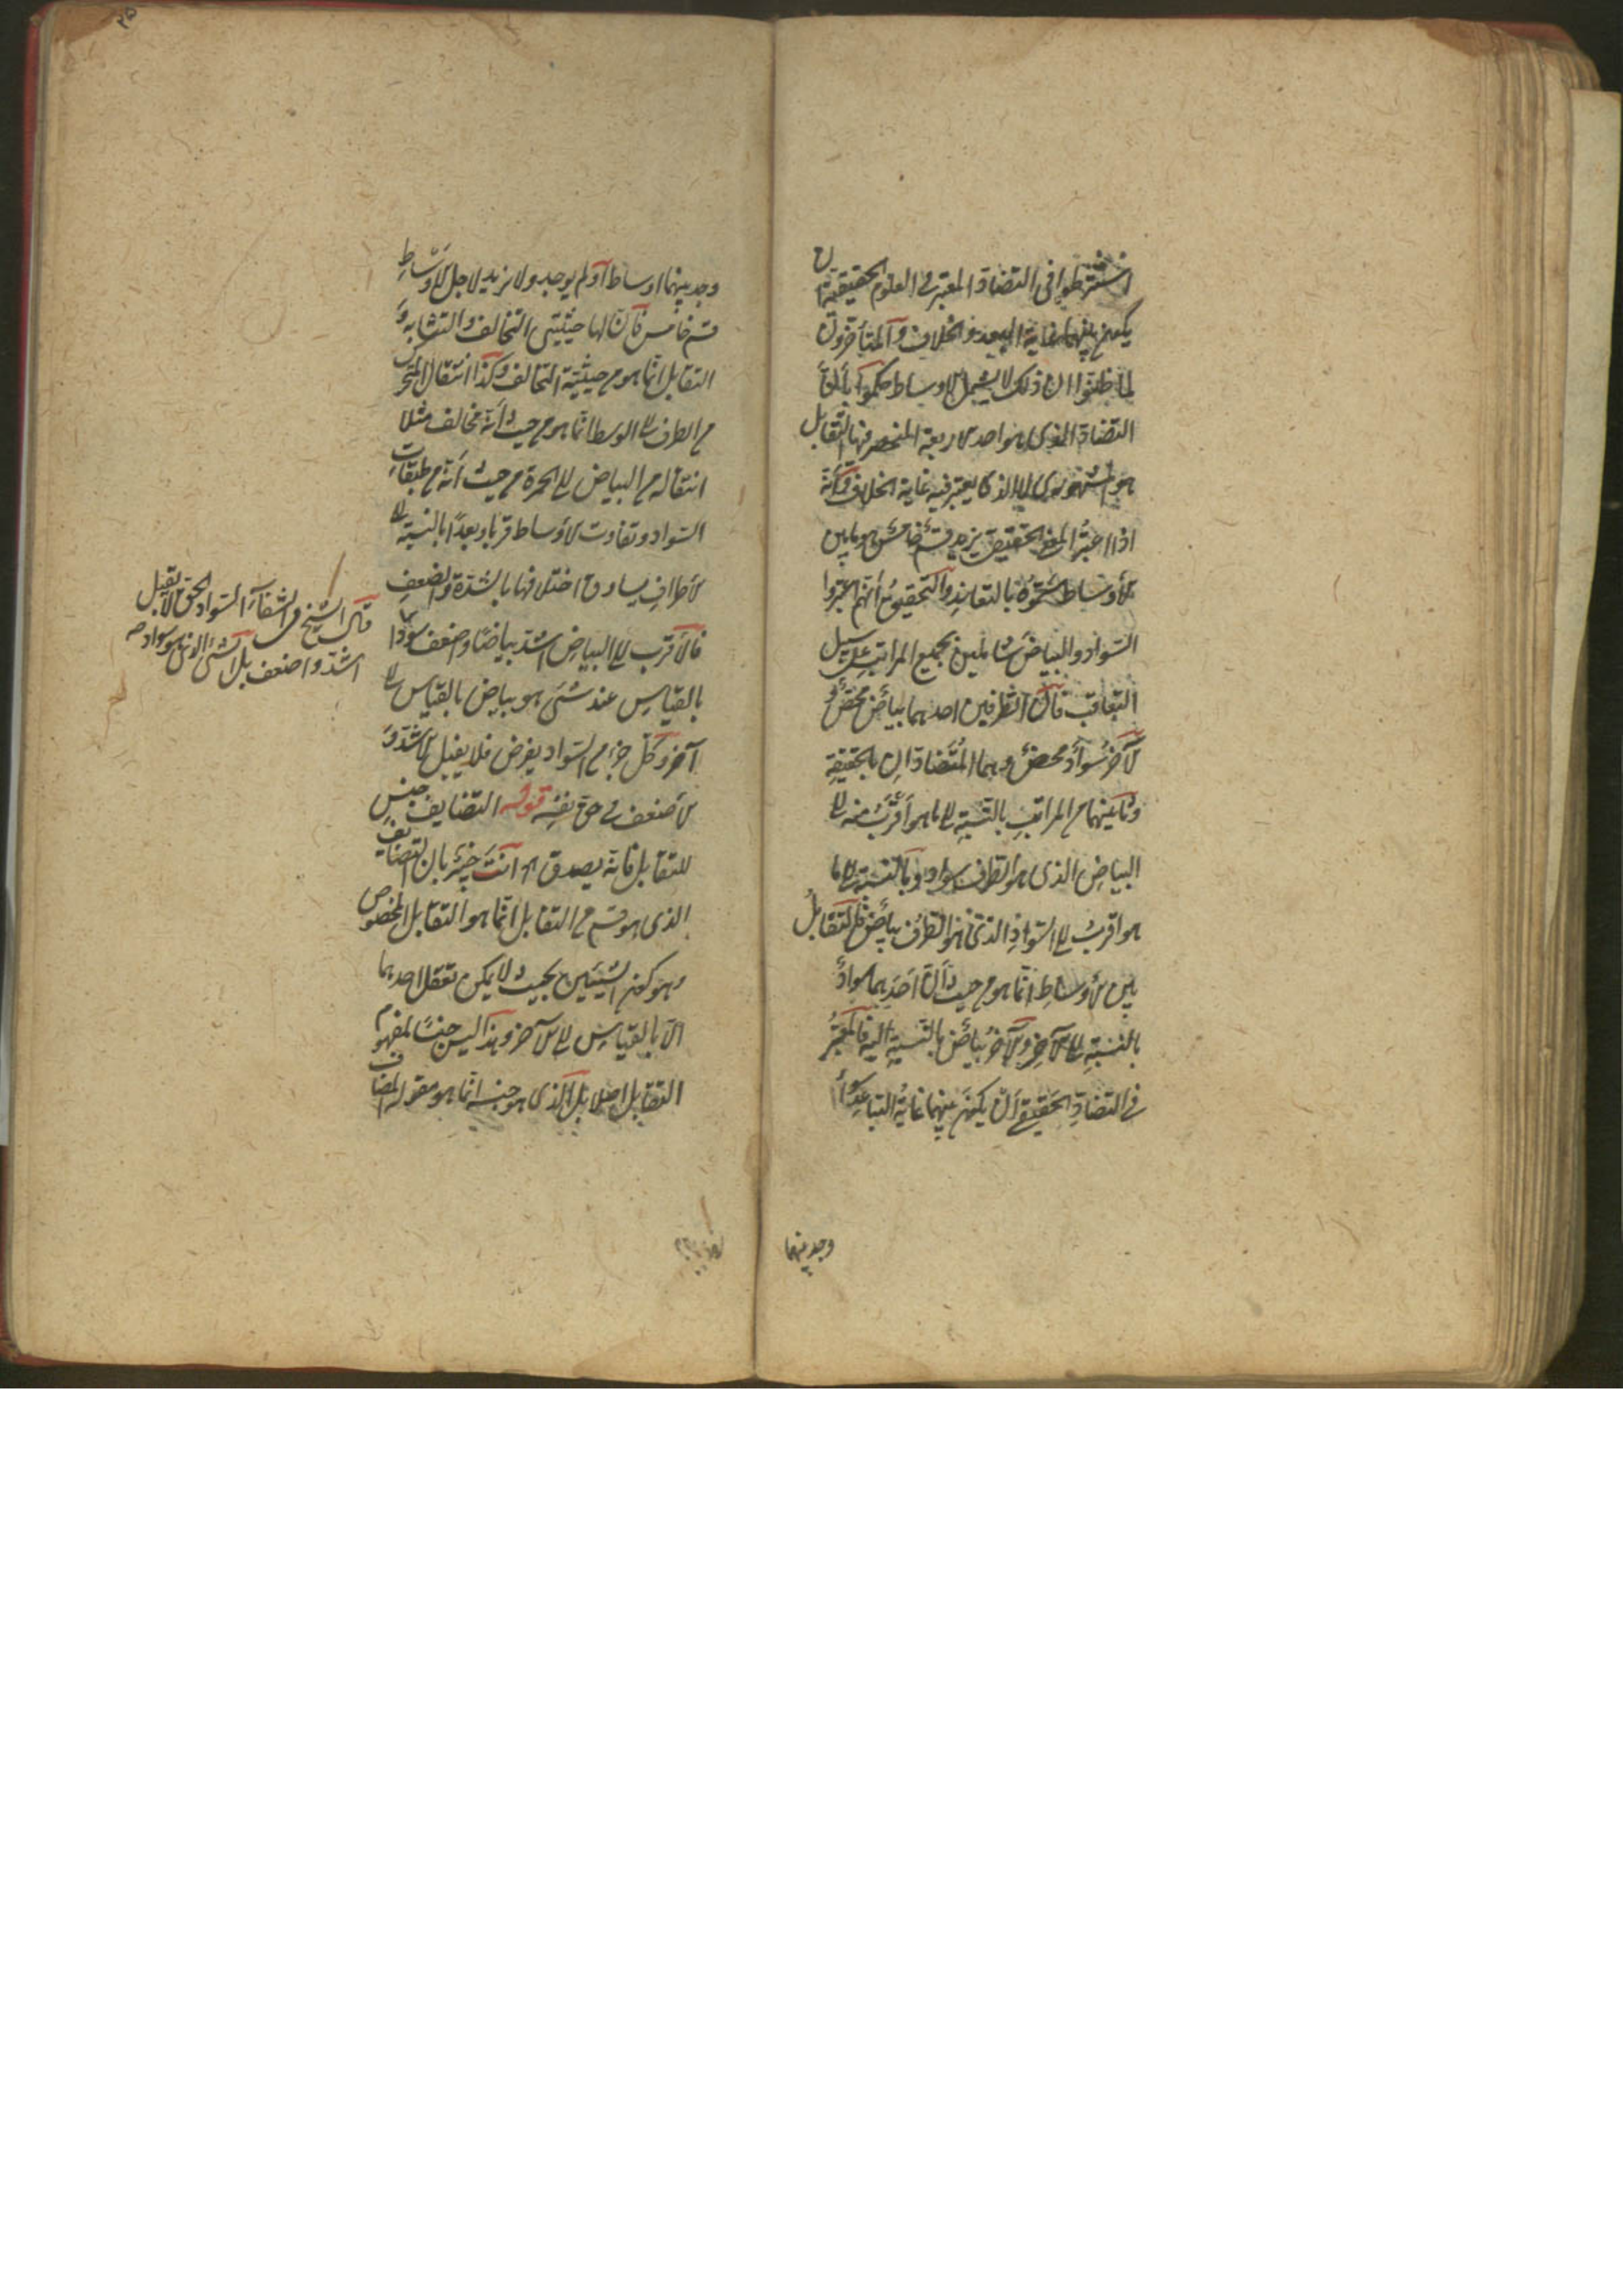 اشترطوا في التضاد المعتبر في العلوم الحقيقية ان
يكون بينهما غاية البعد والخلاف والمتأخرون
لما ظنوا ان ذلك لا يشمل الاوساط حكموا بأن
التضاد الذى هو احد الاربعة المنحصر فيها التقابل
هو المشهورى لا الذى يعتبر فيه غاية الخلاف وأنه
اذا اعتبر المعنى الحقيقى يزيد قسم خامس هو ما بين
الأوساط سموه بالتعاند والتحقيق أنهم اعتبروا
السواد والبياض شاملين لجميع المراتب على سبيل
التعاقب فان الطرفين احدهما بياض محض و
الآخر سواد محض وهما المتضادان بالحقيقة
وما بينهما من المراتب بالنسبة الى ما هو أقرب منه الى
البياض الذى هو الطرف سواد وبالنسبة الى ما
هو اقرب الى السواد الذى هو الطرف بياض فالتقابل
بين الأوساط انما هو من حيث أن أحدهما سواد
بالنسبة الى الآخر والآخر بياض بالنسبة اليه فالمعتبر
في التضاد الحقيقي أن يكون بينهما غاية التباعد سواء
وجد بينهما
وجد بينهما اوساط أو لم يوجد ولا يزيد لاجل الاوساط
قسم خامس فان لها حيثيتي التخالف والتشابه و
التقابل انما هو من حيثية التخالف وكذا انتقال المتحرك
من الطرف الى الوسط انما هو من حيث أنه مخالف مثلا
انتقاله من البياض الى الحمرة من حيث أنه من طبقات
السواد وتفاوت الأوساط قربا وبعدًا بالنسبة الى
الأطراف يساوق اختلافها بالشدة والضعف
فالأقرب الى البياض اشد بياضًا واضعف سوادا
بالقياس عند شئ هو بياض بالقياس الى
آخر وكل جزء من السواد يفرض فلا يقبل الاشد و
الأضعف في حق نفسه قوله التضايف جنس
للتقابل فانه يصدق اه انت خبير بان التضايف
الذى هو قسم من التقابل انما هو التقابل المخصوص
وهو كون الشيئين بحيث لا يمكن تعقل احدهما
الا بالقياس الى الآخر وهذا ليس جنسًا لمفهوم
التقابل اصلا بل الذى هو جنسه انما هو مقولة المضاف
قال الشيخ في الشفاء السواد الحق لا يقبل
اشد واضعف بل الشئ الذى هو سواد